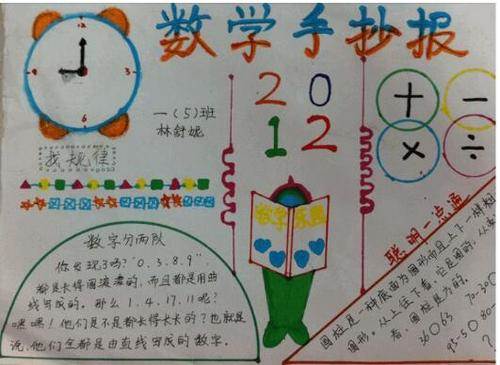 数学手抄报
12
9 3
6
一(5)班
林舒妮
2 0
1 2
+ −
× ÷
找规律
数学 乐园
数字分两队
你发现了吗?"0.3.8.9."
都是长得圆滚滚的,而且都是用曲
线写成的。那么1.4.17.11呢?
嘿嘿!他们是不是都长得卡卡的?也就是
说,他们全都是由直线写成的数字。
聪明一点通
圆柱是一种底面为圆形而且上下一样粗
图形。从上往下看,它是圆的,从
看,圆柱是方的。
36063 70-30
95-50 80